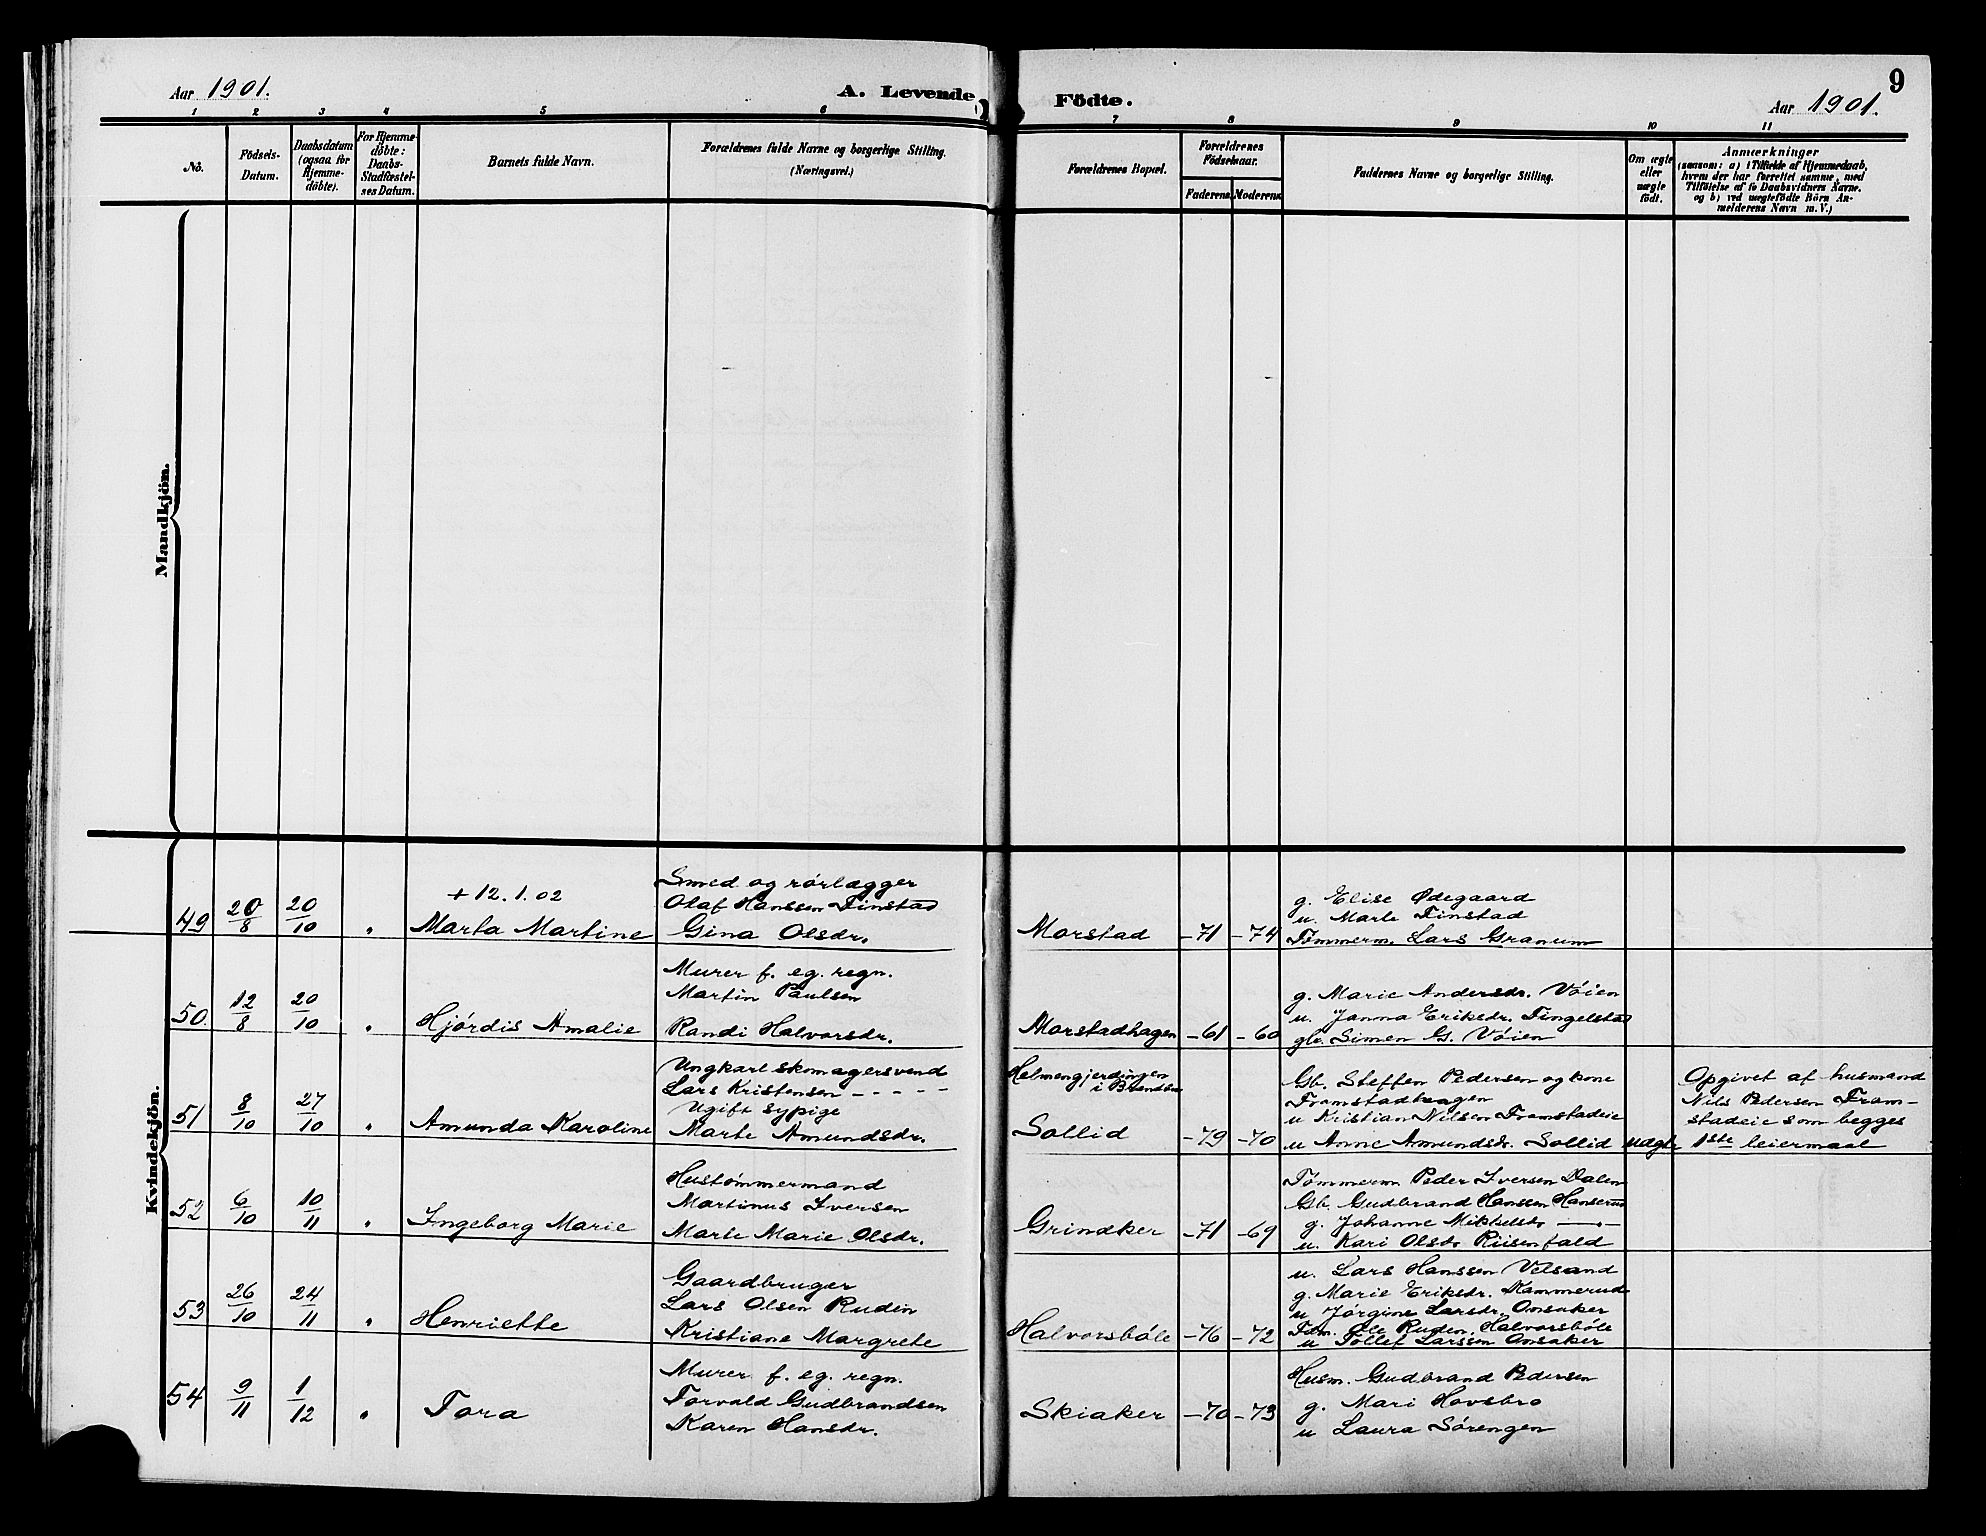 Aar 1901.
A. Levende
Födte.
9
Aar 1901.
1 2 3 4 5 6 7 8 9 10 11
No.
Födsels-
Datum.
Daabsdatum
(ogsaa for
Hjemme-
döbte).
For Hjemme-
döbte:
Daabs-
Stadfæstel-
ses Datum.
Barnets fulde Navn.
Forældrenes fulde Navne og borgerlige Stilling.
(Næringsvei.)
Forældrenes Bopæl.
Forældrenes
Födselsaar.
Faderens. Moderens.
Faddernes Navne og borgerlige Stilling.
Om ægte
eller
uægte
födt.
Anmærkninger
(saasom: a) i Tilfælde af Hjemmedaab,
hvem der har forrettet samme, med
Tilföielse af to Daabsvidners Navne.
og b) ved uægtefödte Börn An-
melderens Navn m. V.)
Mandkjön.
Kvindekjön.
49
20/8
20/10
"
+ 12. 1. 02
Marta Martine
Smed og rørlægger
Olaf Hanssen Finstad
Gina Olsdr.
Morstad
-71 -74
g. Elise Ødegaard
u. Marte Finstad
Tømmerm. Lars Granum
50.
12/8
20/10
"
Hjórdis Amalie
Murer f. eg. regn.
Martin Paulsen
Randi Halvorsdr.
Morstadhagen
-61 -60
g. Marie Andersdr. Vóien
u. Janna Eriksdr. Tingelstad
gbr. Simen G. Vóien
51
8/10
27/10
"
Amunda Karoline
Ungkarl skomagersvend
Lars Kristensen - - - -
Ugift sypige
Marte Amundsdr.
Helmengjerdingen
i Brandbu
Sollid
-79 -70
Gb. Steffen Pedersen og kone
Framstadhagen
u Kristian Nilsen Framstadeie
u Anne Amundsdr. Sollid
Uægte
Opgivet af husmand
Nils Pedersen Fram-
stadeie som begges
1ste leiermaal
52
6/10
10/11
"
Ingeborg Marie
Hustómmermand
Martinus Iversen
Marte Marie Olsdr.
Grindker
-71 -69
Tómmerm Peder Iversen Dalen
Gb. Gudbrand Hanssen Hanserud
g. Johanne Mikkelsdr —"—
u. Kari Olsdr Riisenfald
53
26/10
24/11
"
Henriette
Gaardbruger
Lars Olsen Ruden
Kristiane Margrete
Halvorsbóle
-76 -72
u. Lars Hanssen Velsand
g. Marie Eriksdr. Kammerud
u Jórgine Larsdr. Onsaker
Tóm. Ole Ruden, Halvorsbóle
u Tollef Larssen Onsaker
54
9/11
1/12
"
Tora
Murer f. eg. regn.
Torvald Gudbrandsen
Karen Hansdr.
Skiaker
-70 -73
Husm. Gudbrand Pedersen
g. Mari Hovsbro
u Laura Sórengen